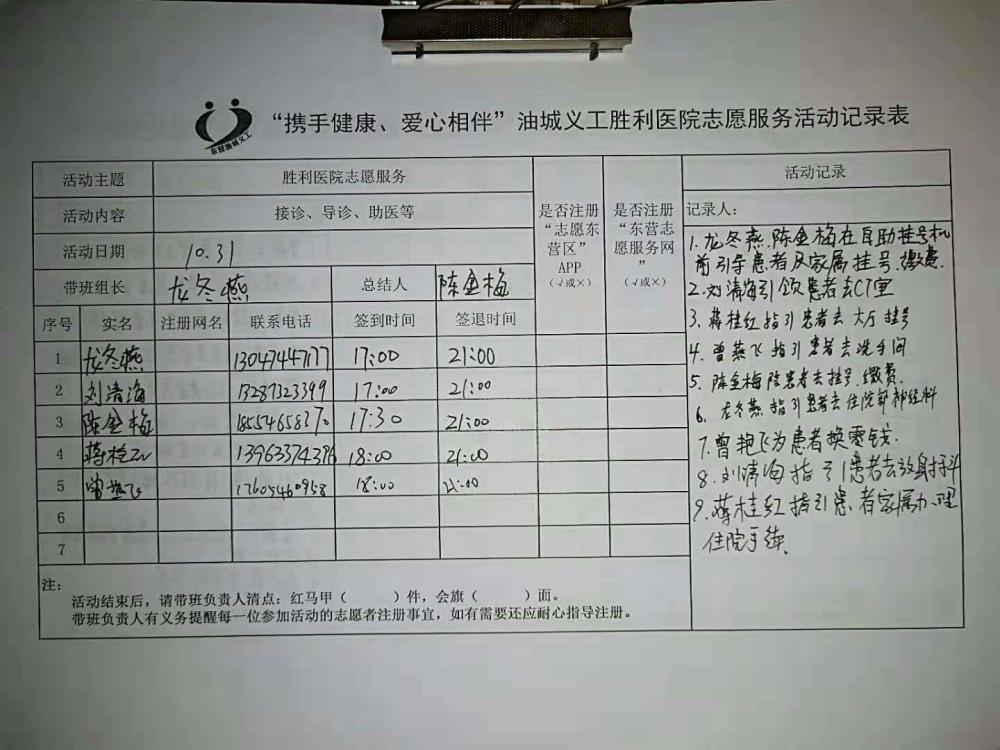 东营油城义工
“携手健康、爱心相伴”油城义工胜利医院志愿服务活动记录表
活动主题 胜利医院志愿服务
活动内容 接诊、导诊、助医等
活动日期 10.31
带班组长 龙冬燕 总结人 陈金梅
是否注册“志愿东营区”APP（√或×）
是否注册“东营志愿服务网”（√或×）
序号 实名 注册网名 联系电话 签到时间 签退时间
1 龙冬燕 13047447177 17:00 21:00
2 刘清海 13287323399 17:00 21:00
3 陈金梅 18554658370 17:30 21:00
4 蒋桂红 13963374376 18:00 21:00
5 曾艳飞 17605460958 18:00 21:00
6
7
活动记录
记录人：
1.龙冬燕.陈金梅在自助挂号机
前引导患者及家属挂号.缴费.
2.刘清海引领患者去CT室
3.蒋桂红指引患者去大厅挂号
4.曾燕飞指引患者去洗手间
5.陈金梅陪患者去挂号.缴费.
6.龙冬燕指引患者去住院部神经科
7.曾艳飞为患者换零钱.
8.刘清海指引患者去放射科
9.蒋桂红指引患者家属办理
住院手续.
注：
活动结束后，请带班负责人清点：红马甲（ ）件，会旗（ ）面。
带班负责人有义务提醒每一位参加活动的志愿者注册事宜，如有需要还应耐心指导注册。